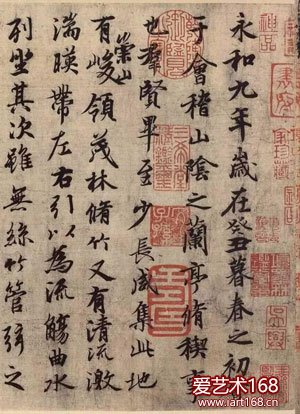 永和九年歲在癸丑暮春之初
于會稽山陰之蘭亭脩稧事
也羣賢畢至少長咸集此地
有崇山峻領茂林脩竹又有清流激
湍暎帶左右引以為流觴曲水
列坐其次雖無絲竹管弦之
神品
爱艺术168